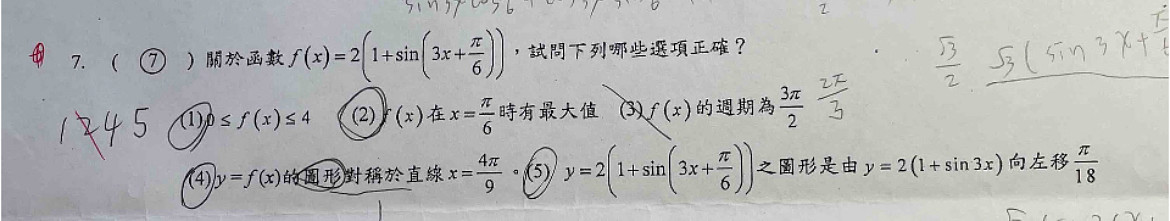 7. ( ⑦ ) 關於函數 f(x)=2(1+sin(3x+π/6)),試問下列哪些選項正確?
√3/2 √3(sin3x+
1245 (1) 0≤f(x)≤4 (2) f(x)在x=π/6時有最大值 (3) f(x)的週期為3π/2 2π/3
(4) y=f(x)的圖形對稱於直線x=4π/9。(5) y=2(1+sin(3x+π/6))之圖形是由y=2(1+sin3x)向左移π/18